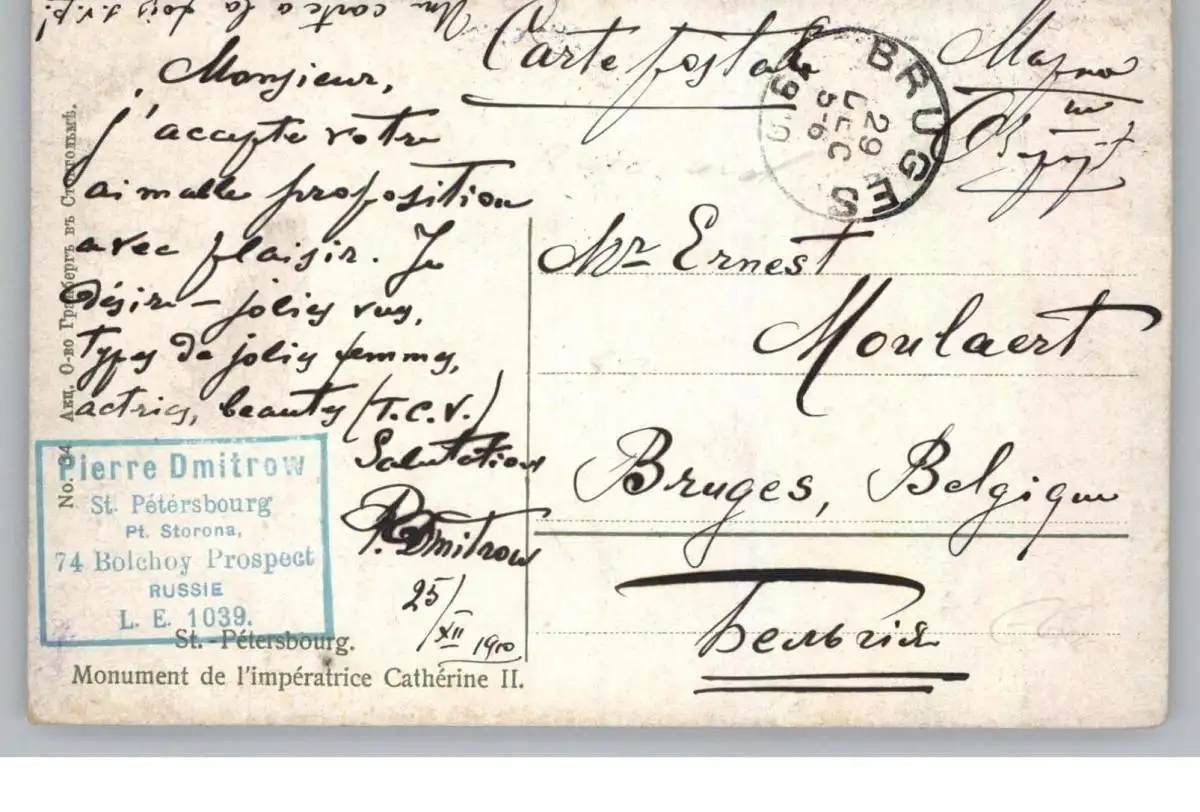 Un carte a la fois s.v.p!
Carte postale
Monsieur,
j'accepte votre
aimable proposition
avec plaisir. Je
désire – jolies vues,
types de jolies femmes,
actrices, beautés (T.C.V.)
Salutation
P. Dmitrow
25/XII 1910
BRUGES
29 DEC
5-6
Mr Ernest
Moulaert
Bruges, Belgique
Бельгія
No. 34 Акц. О-во Гранбергъ въ Стокгольмѣ.
Pierre Dmitrow
St. Pétérsbourg
Pt. Storona,
74 Bolchoy Prospect
RUSSIE
L. E. 1039.
St.-Pétersbourg.
Monument de l'impératrice Cathérine II.